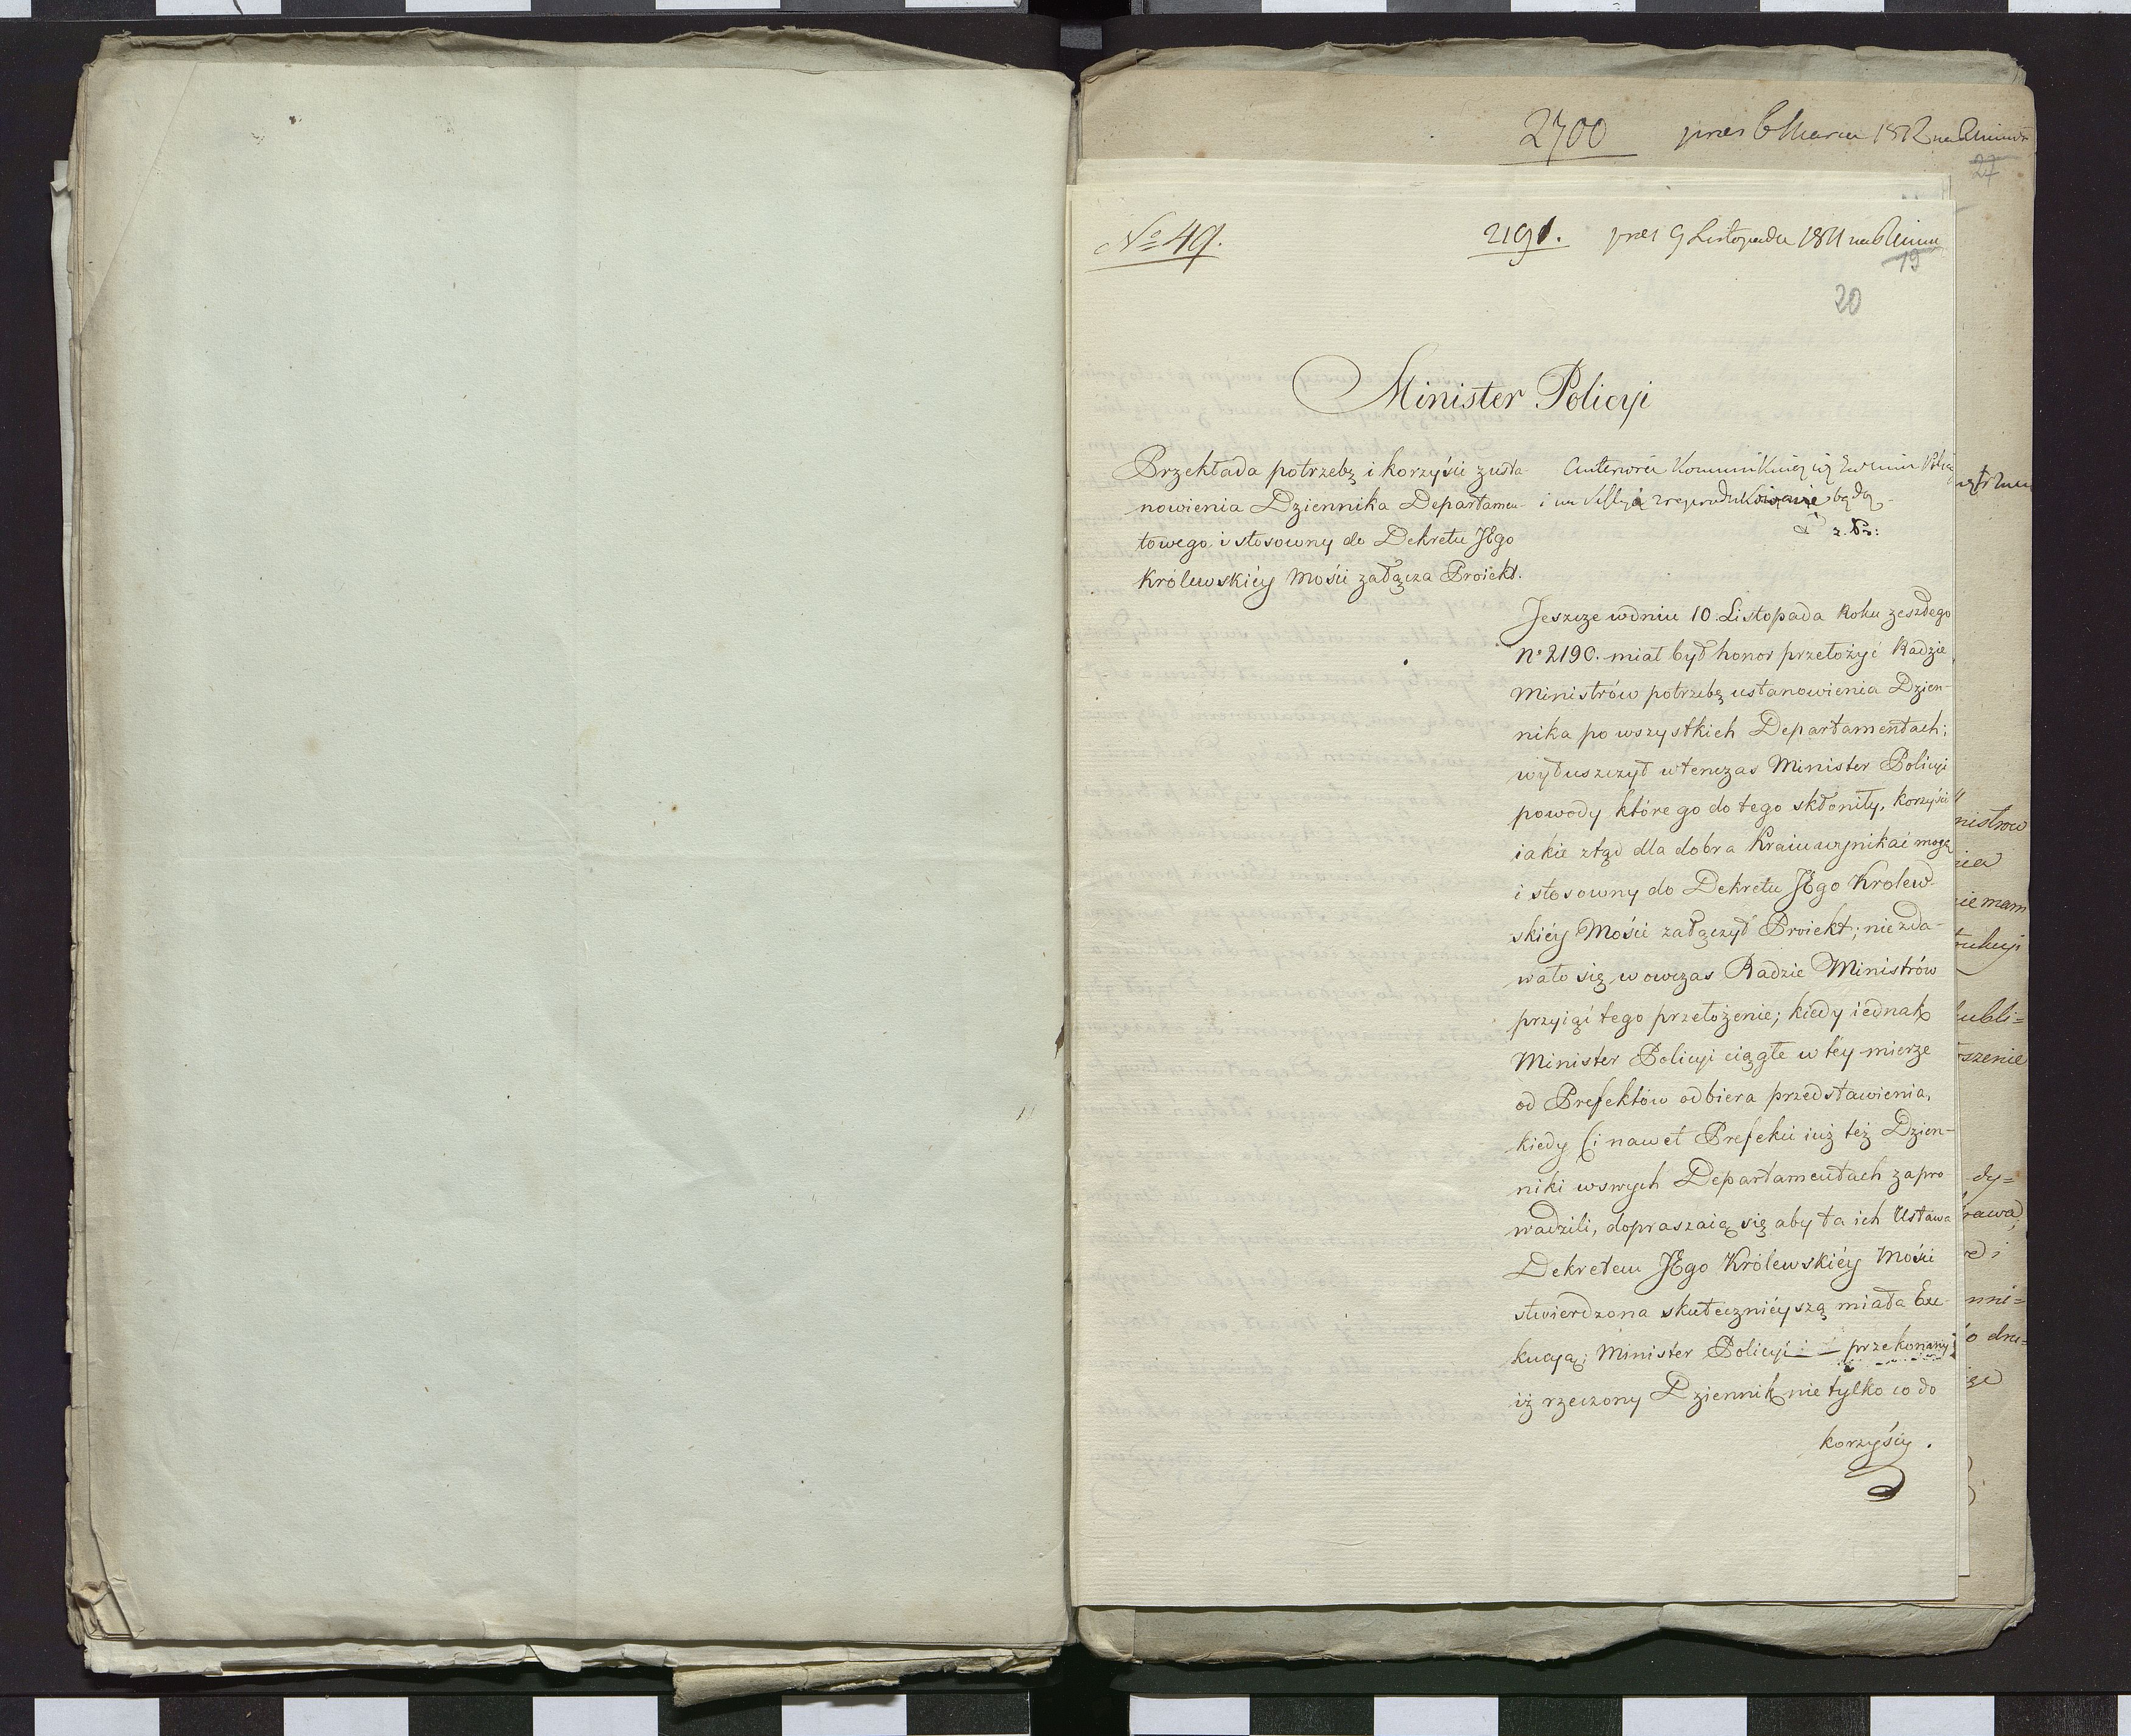 2700 pres 6 Marca 1812 na
27
No 49.
2191. pres 9 Listopada 1811
19
20
Minister Policyi
Przekłada potrzebę i korzyści z usta-
nowienia Dziennika Departamen-
towego i stosowny do Dekretu JEgo
Królewskiéy Mości załącza Proiekt.
i na będą
Jeszcze w dniu 10. Listopada Roku zeszłego
No 2190. miał był honor przełożyć Radzie
Ministrów potrzebę ustanowienia Dzien-
nika po wszystkich Departamentach;
wyłuszczył wtenczas Minister Policyi
powody które go do tego skłoniły, korzyści
iakie ztąd dla dobra Kraiu wynikać mogą
i stosowny do Dekretu JEgo Królew-
skiéy Mości załączył Proiekt; nie zda-
wało się wowczas Radzie Ministrów
przyiąć tego przełożenie; kiedy iednak
Minister Policyi ciągłe w téy mierze
od Prefektów odbiera przedstawienia,
kiedy (i nawet Prefekci iuż też Dzien-
niki w swych Departamentach zapro-
wadzili, dopraszaią się aby ta ich Ustawa
Dekretem JEgo Królewskiéy Mości
stwierdzona skutecznieyszą miała Exe-
kucyą; Minister Policyi przekonany
iż rzeczony Dziennik nie tylko co do
korzyści.
nistrow
nia
ie mam
ubli=
szenie
dy=
rawa,
nni=
o dru=